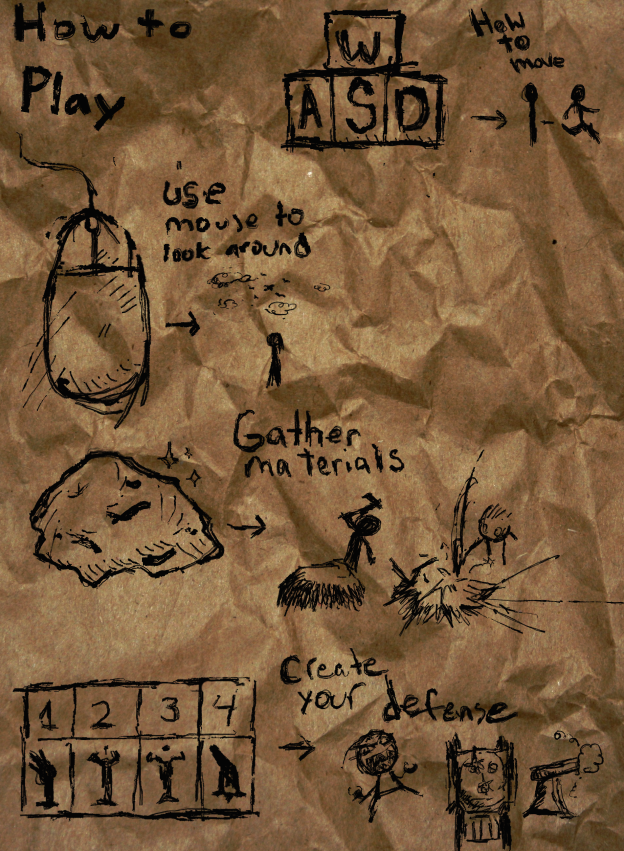 How to
Play
W
A S D
How
to
move
use
mouse to
look around
Gather
materials
1 2 3 4
Create
your defense